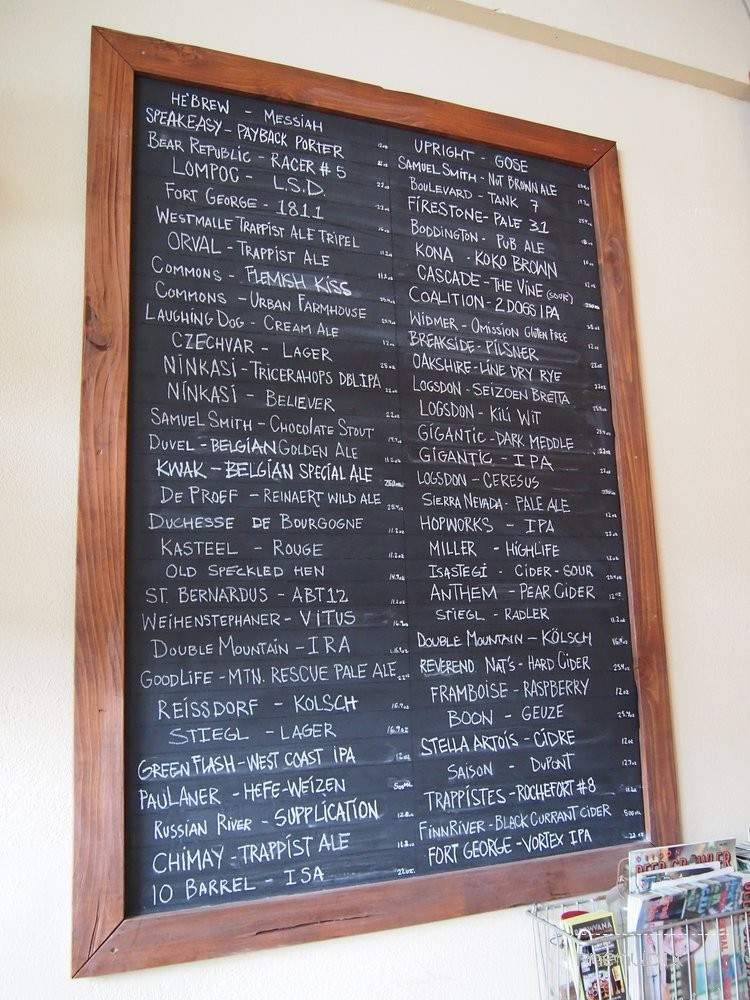 HE'BREW - MESSIAH
SPEAKEASY - PAYBACK PORTER 12oz
BEAR REPUBLIC - RACER #5
LOMPOC - L.S.D. 22oz
FORT GEORGE - 1811
WESTMALLE TRAPPIST ALE TRIPEL
ORVAL - TRAPPIST ALE 11.2oz
COMMONS - FLEMISH KISS
COMMONS - URBAN FARMHOUSE
LAUGHING DOG - CREAM ALE
CZECHVAR - LAGER 12oz
NINKASI - TRICERAHOPS DBL IPA
NINKASI - BELIEVER 22oz
SAMUEL SMITH - CHOCOLATE STOUT
DUVEL - BELGIAN GOLDEN ALE
KWAK - BELGIAN SPECIAL ALE
DE PROEF - REINAERT WILD ALE
DUCHESSE DE BOURGOGNE 11.2oz
KASTEEL - ROUGE 11.2oz
OLD SPECKLED HEN
ST. BERNARDUS - ABT 12 11.2oz
WEIHENSTEPHANER - VITUS
DOUBLE MOUNTAIN - IRA
GOODLIFE - MTN. RESCUE PALE ALE
REISSDORF - KOLSCH 16.9oz
STIEGL - LAGER 16.9oz
GREEN FLASH - WEST COAST IPA 12oz
PAULANER - HEFE-WEIZEN
RUSSIAN RIVER - SUPPLICATION
CHIMAY - TRAPPIST ALE
10 BARREL - ISA 22oz.
UPRIGHT - GOSE
SAMUEL SMITH - NUT BROWN ALE
BOULEVARD - TANK 7
FIRESTONE - PALE 31
BODDINGTON - PUB ALE
KONA - KOKO BROWN
CASCADE - THE VINE (SOUR)
COALITION - 2 DOGS IPA
WIDMER - OMISSION GLUTEN FREE
BREAKSIDE - PILSNER
OAKSHIRE - LINE DRY RYE
LOGSDON - SEIZOEN BRETTA
LOGSDON - KILI WIT
GIGANTIC - DARK MEDDLE
GIGANTIC - IPA
LOGSDON - CERESUS
SIERRA NEVADA - PALE ALE
HOPWORKS - IPA
MILLER - HIGHLIFE
ISASTEGI - CIDER - SOUR
ANTHEM - PEAR CIDER 12oz
STIEGL - RADLER
DOUBLE MOUNTAIN - KÖLSCH
REVEREND NAT'S - HARD CIDER
FRAMBOISE - RASPBERRY 12oz
BOON - GEUZE
STELLA ARTOIS - CIDRE 12oz
SAISON - DUPONT
TRAPPISTES - ROCHEFORT #8
FINNRIVER - BLACK CURRANT CIDER
FORT GEORGE - VORTEX IPA 22oz